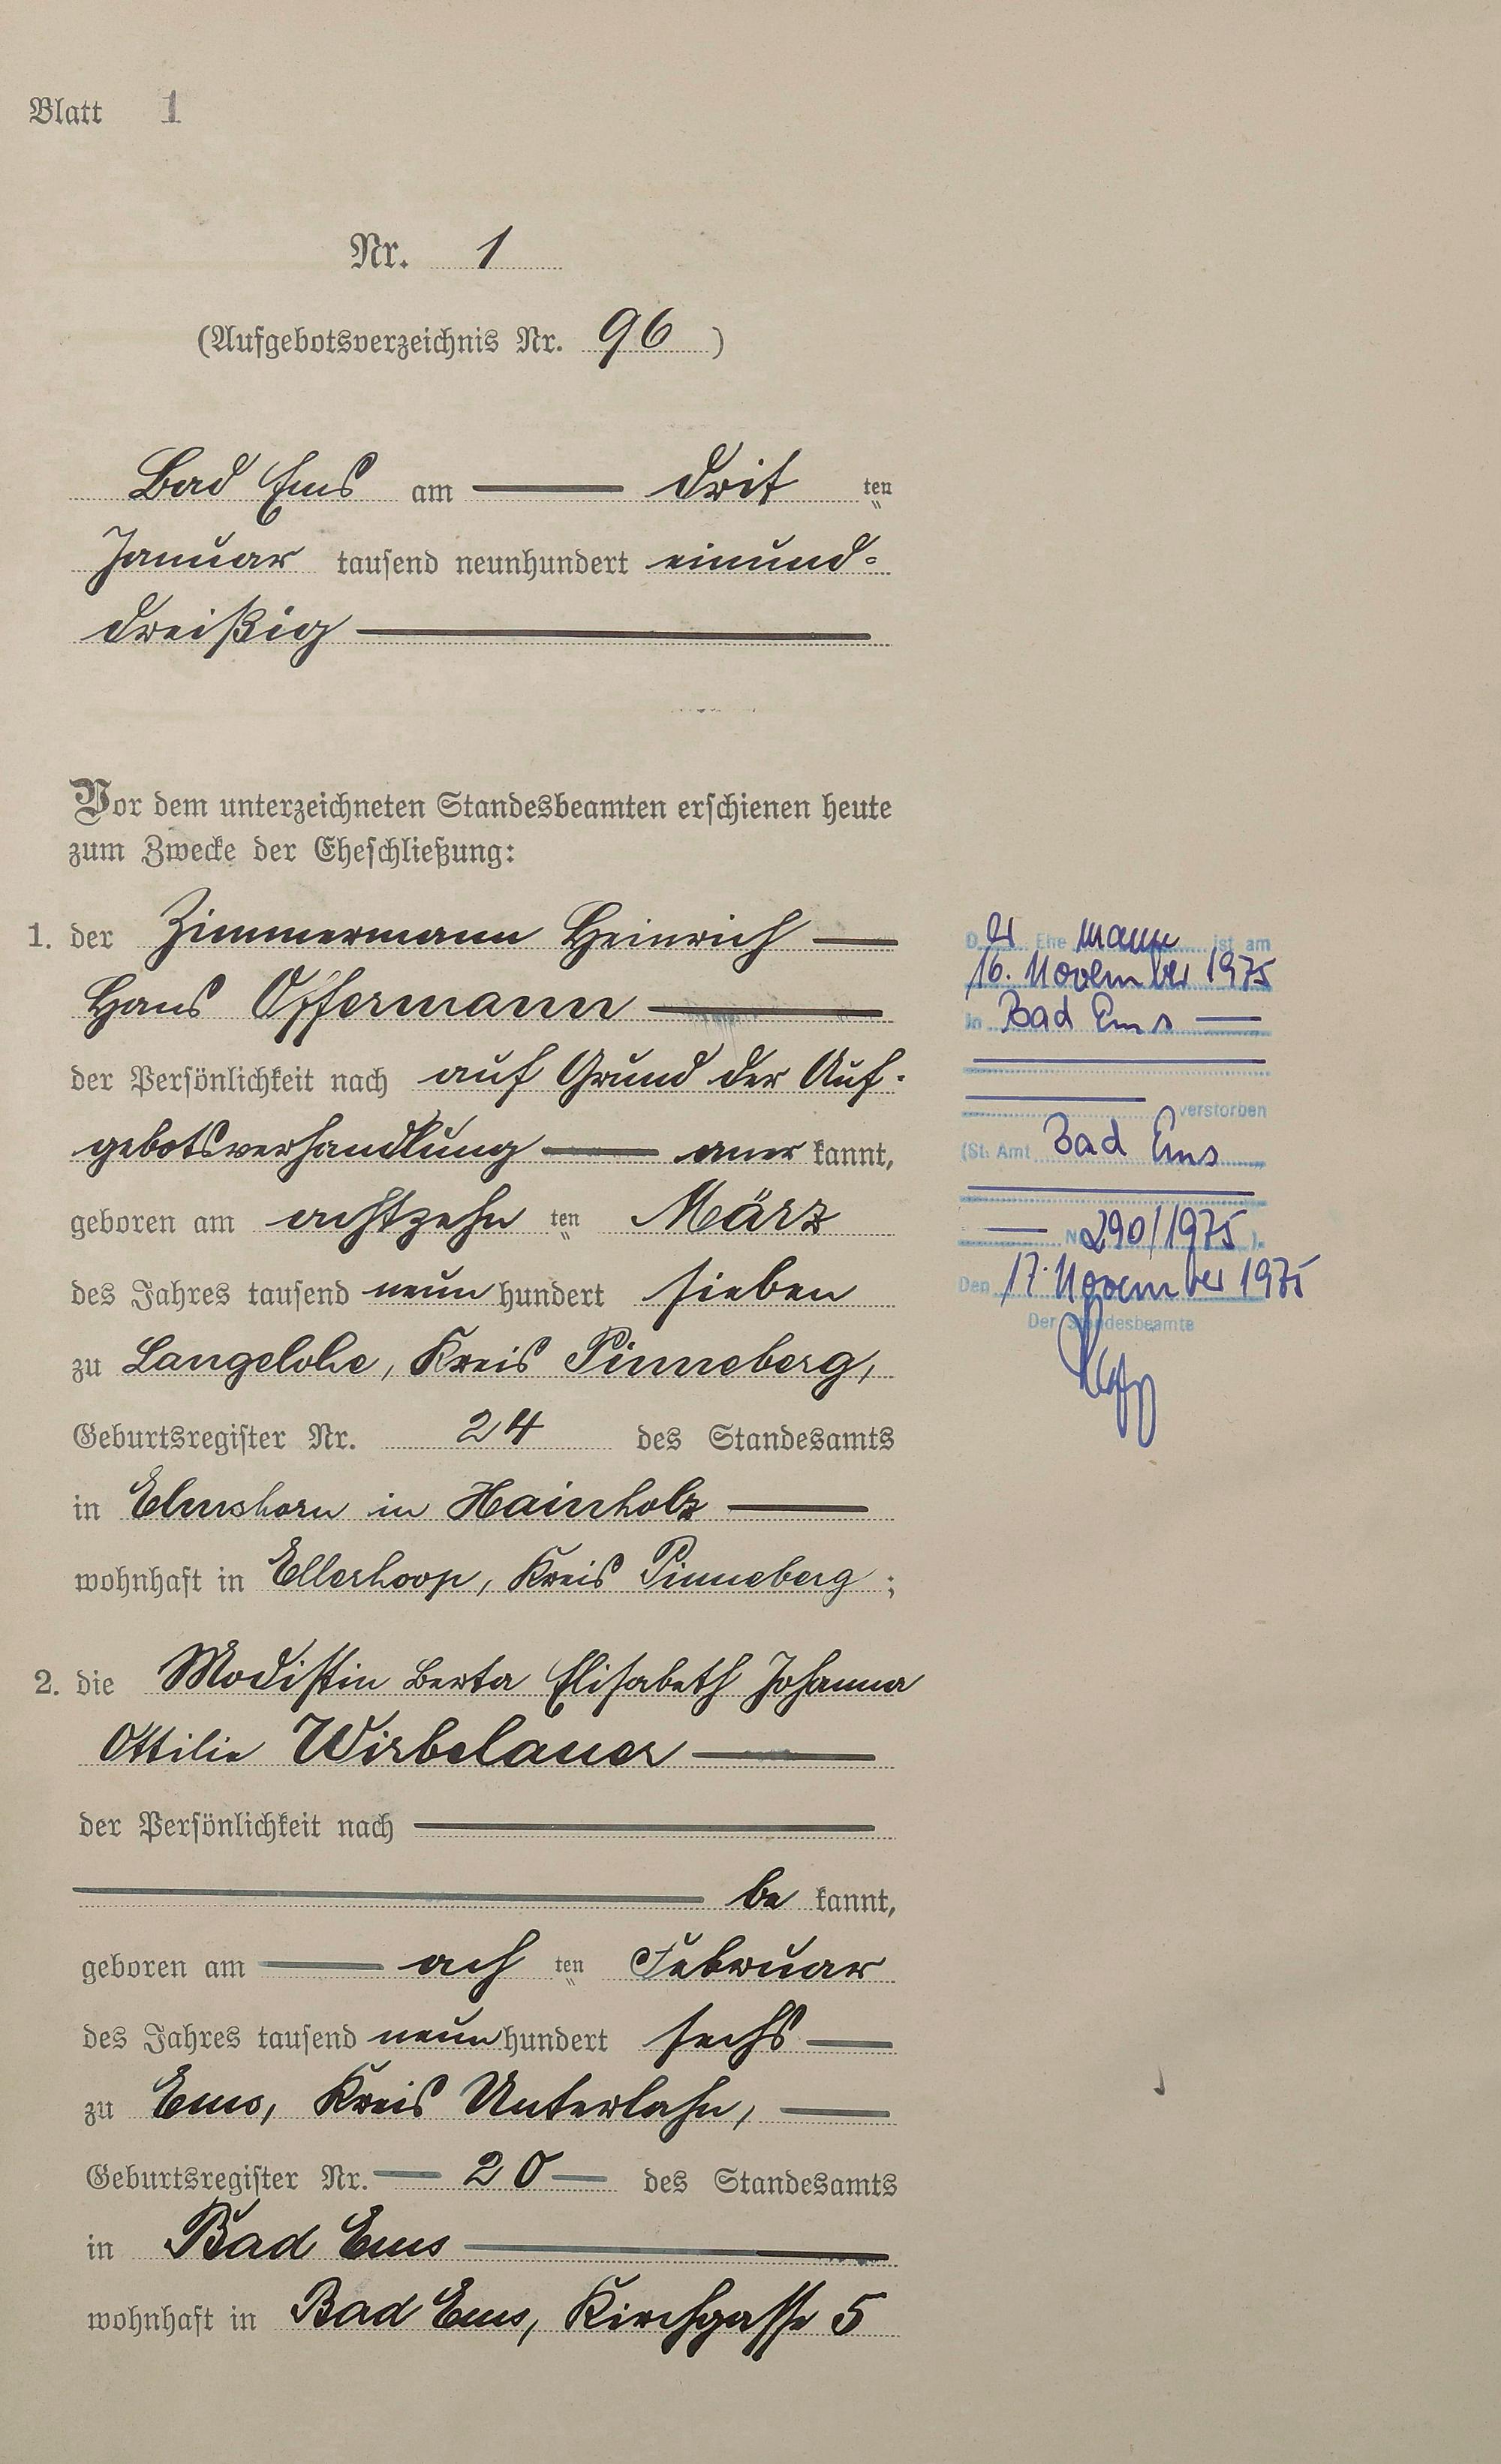 Blatt 1
Nr. 1
(Aufgebotsverzeichnis Nr. 96)
Bad Ems am — drit ten
Januar tausend neunhundert einund-
dreißig —
Vor dem unterzeichneten Standesbeamten erschienen heute
zum Zwecke der Eheschließung:
1. der Zimmermann Heinrich —
Hans Offermann —
der Persönlichkeit nach auf Grund der Auf-
gebotsverhandlung — aner kannt,
geboren am achtzehn ten März
des Jahres tausend neun hundert sieben
zu Langelohe, Kreis Pinneberg,
Geburtsregister Nr. 24 des Standesamts
in Elmshorn in Hainholz —
wohnhaft in Ellerhoop, Kreis Pinneberg ;
2. die Modistin Berta Elisabeth Johanna
Ottilie Wirbelauer —
der Persönlichkeit nach —
— be kannt,
geboren am — ach ten Februar
des Jahres tausend neun hundert sechs —
zu Ems, Kreis Unterlahn, —
Geburtsregister Nr. — 20 — des Standesamts
in Bad Ems —
wohnhaft in Bad Ems, Kirchgasse 5
Der Ehe mann ist am
16. November 1975
in Bad Ems —
verstorben
(St. Amt Bad Ems
— Nr. 290/1975 ).
Den 17. November 1975
Der Standesbeamte